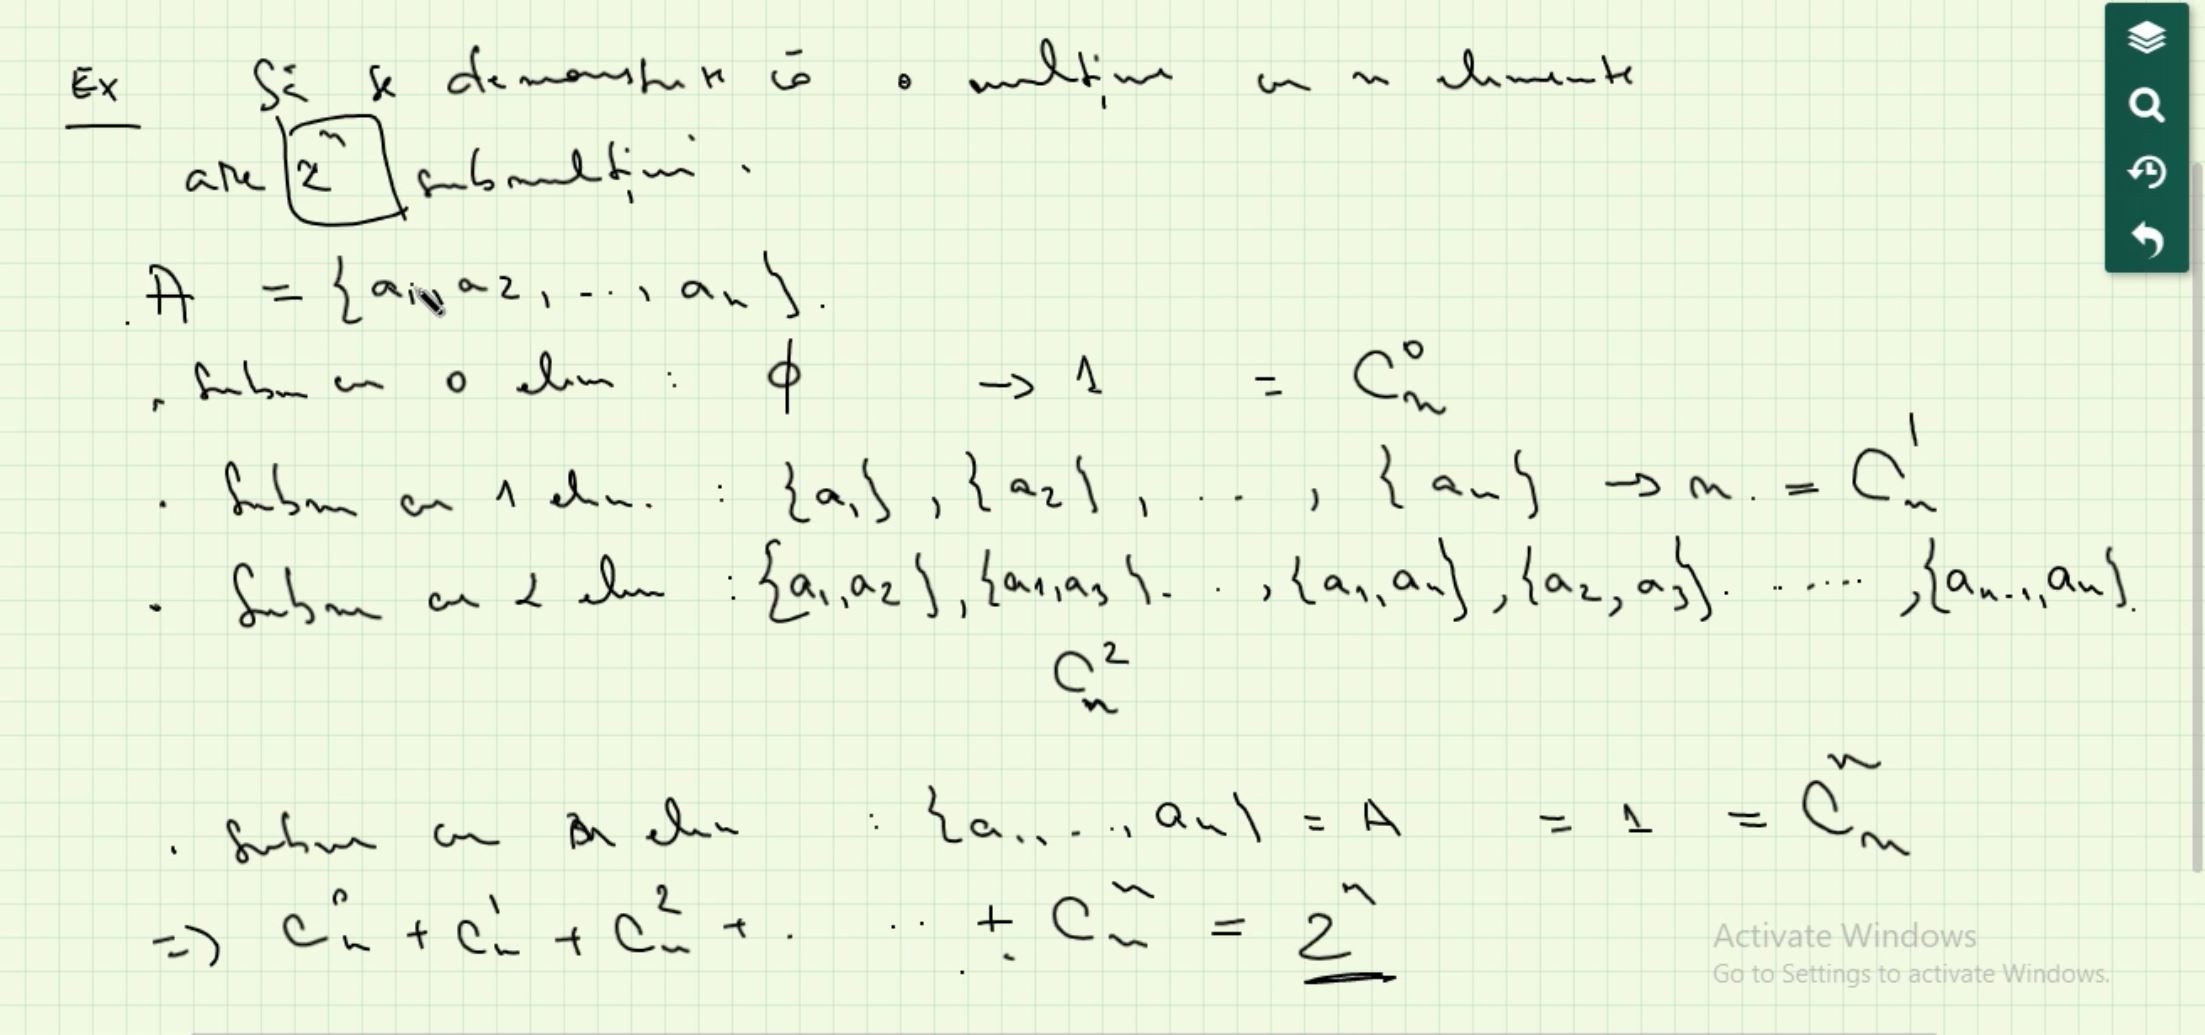 Ex Să se demonstreze că o mulțime cu n elemente
are 2^n submulțimi.
A = {a1, a2, ..., an}.
. Subm cu 0 elem : ϕ → 1 = C_n^0
. Subm cu 1 elem. : {a1}, {a2}, ..., {an} → n. = C_n^1
. Subm cu 2 elem : {a1,a2}, {a1,a3}..., {a1,an}, {a2,a3}. ....., {an-1,an}.
C_n^2
. Subm cu n elem : {a1,..., an} = A = 1 = C_n^n
=> C_n^0 + C_n^1 + C_n^2 + . ... + C_n^n = 2^n
Activate Windows
Go to Settings to activate Windows.